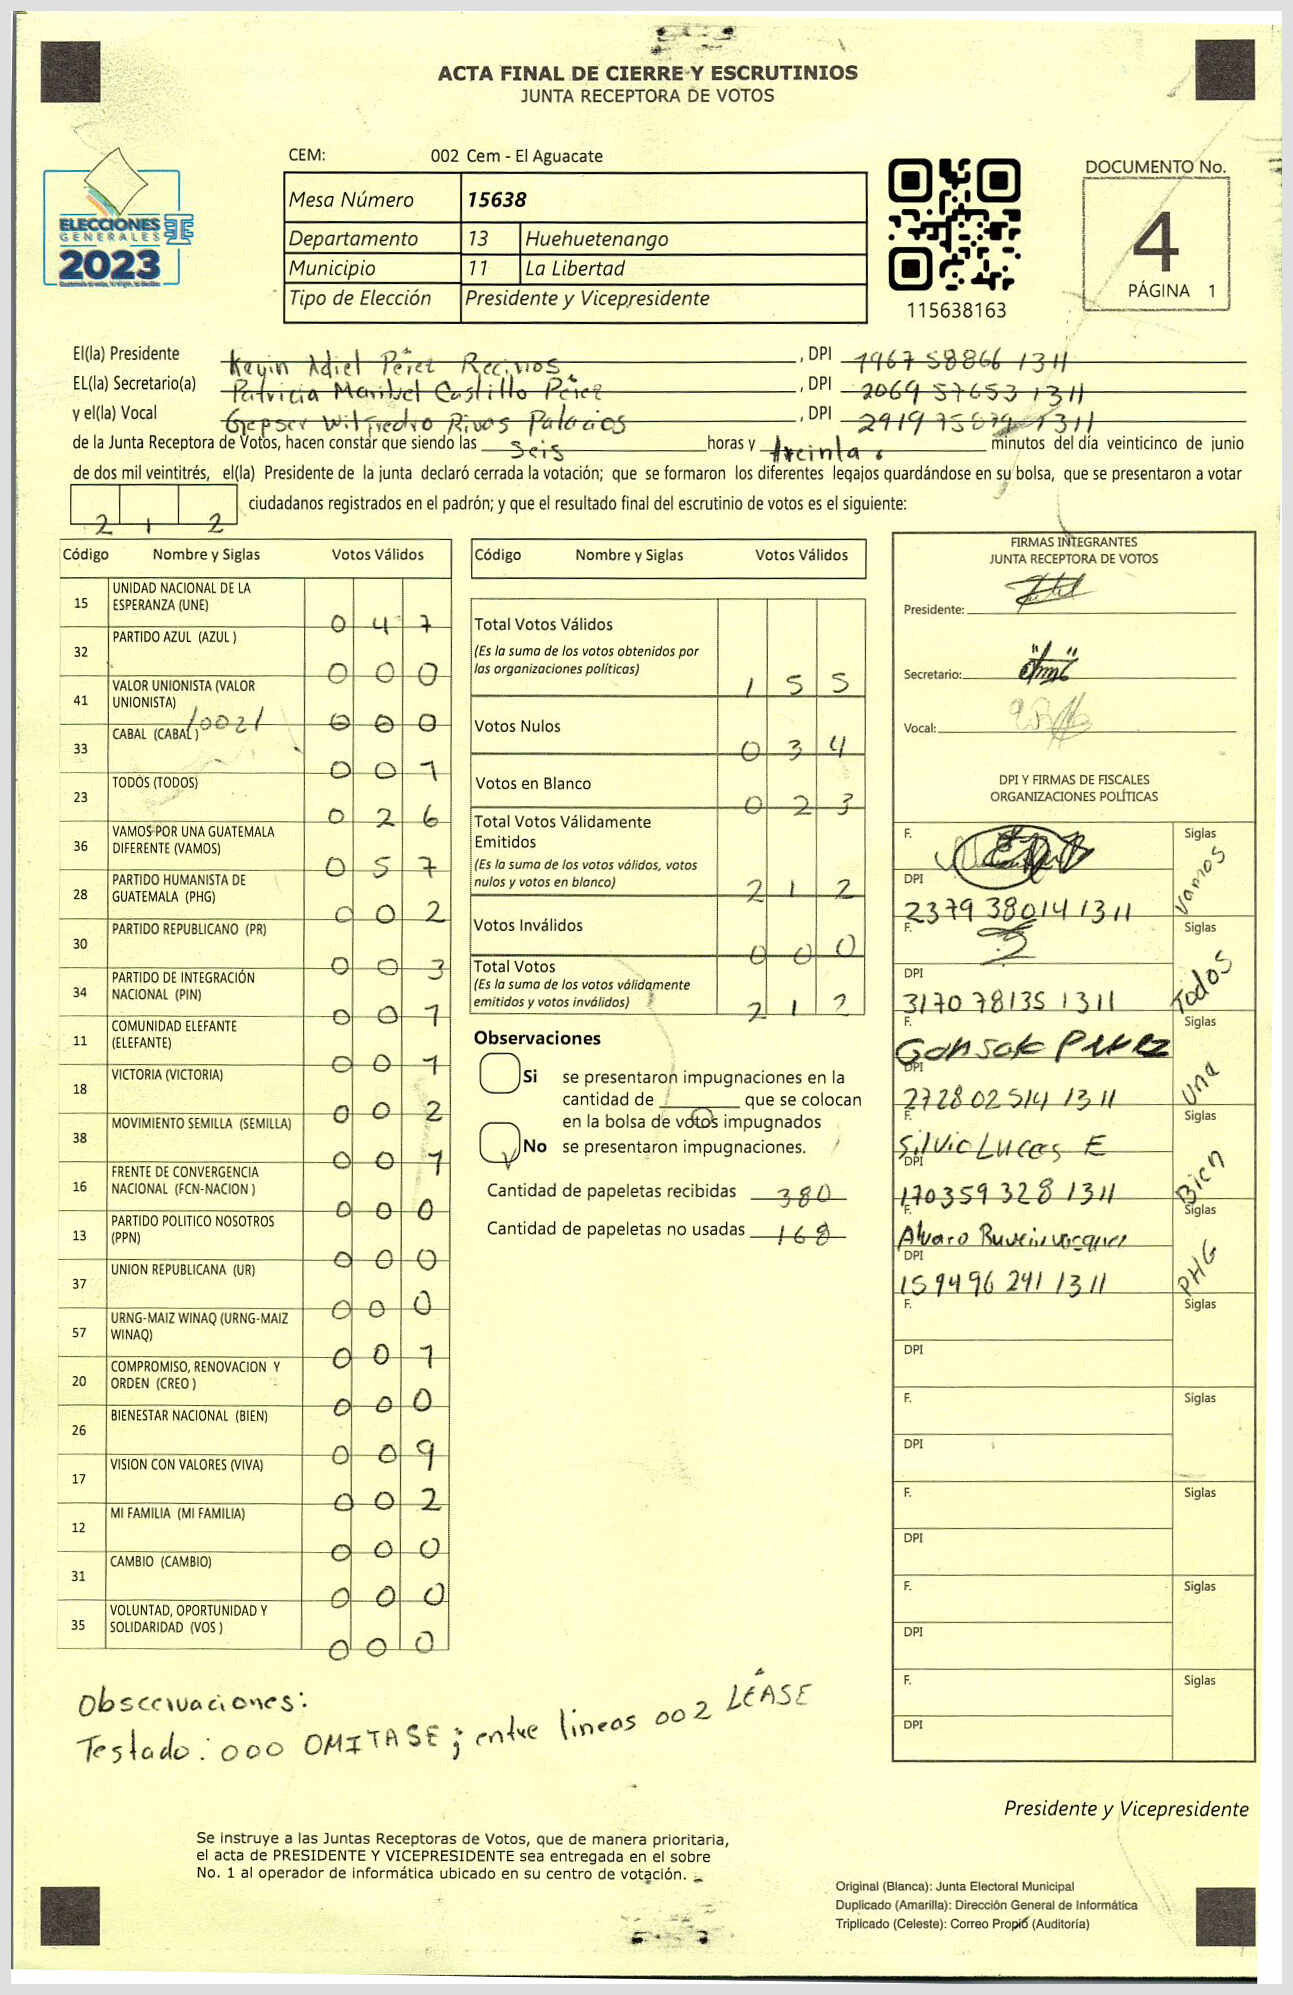 ACTA FINAL DE CIERRE Y ESCRUTINIOS
JUNTA RECEPTORA DE VOTOS
CEM: 002 Cem - El Aguacate
Mesa Número 15638
Departamento 13 Huehuetenango
Municipio 11 La Libertad
Tipo de Elección Presidente y Vicepresidente
ELECCIONES
GENERALES
2023
115638163
DOCUMENTO No.
4
PÁGINA 1
El(la) Presidente Kevin Adiel Pérez Recinos, DPI 1967 58866 1311
EL(la) Secretario(a) Patricia Maribel Castillo Pérez, DPI 2069 57653 1311
y el(la) Vocal Gepser Wilfredro Rivas Palacios, DPI 1311
de la Junta Receptora de Votos, hacen constar que siendo las seis horas y treinta minutos del día veinticinco de junio
de dos mil veintitrés, el(la) Presidente de la junta declaró cerrada la votación; que se formaron los diferentes legajos quardándose en su bolsa, que se presentaron a votar
2 1 2 ciudadanos registrados en el padrón; y que el resultado final del escrutinio de votos es el siguiente:
Código Nombre y Siglas Votos Válidos
15 UNIDAD NACIONAL DE LA ESPERANZA (UNE) 0 4 7
32 PARTIDO AZUL (AZUL ) 0 0 0
41 VALOR UNIONISTA (VALOR UNIONISTA) 0 0 0
/002/
33 CABAL (CABAL ) 0 0 1
23 TODOS (TODOS) 0 2 6
36 VAMOS POR UNA GUATEMALA DIFERENTE (VAMOS) 0 5 7
28 PARTIDO HUMANISTA DE GUATEMALA (PHG) 0 0 2
30 PARTIDO REPUBLICANO (PR) 0 0 3
34 PARTIDO DE INTEGRACIÓN NACIONAL (PIN) 0 0 1
11 COMUNIDAD ELEFANTE (ELEFANTE) 0 0 1
18 VICTORIA (VICTORIA) 0 0 2
38 MOVIMIENTO SEMILLA (SEMILLA) 0 0 1
16 FRENTE DE CONVERGENCIA NACIONAL (FCN-NACION ) 0 0 0
13 PARTIDO POLITICO NOSOTROS (PPN) 0 0 0
37 UNION REPUBLICANA (UR) 0 0 0
57 URNG-MAIZ WINAQ (URNG-MAIZ WINAQ) 0 0 1
20 COMPROMISO, RENOVACION Y ORDEN (CREO ) 0 0 0
26 BIENESTAR NACIONAL (BIEN) 0 0 9
17 VISION CON VALORES (VIVA) 0 0 2
12 MI FAMILIA (MI FAMILIA) 0 0 0
31 CAMBIO (CAMBIO) 0 0 0
35 VOLUNTAD, OPORTUNIDAD Y SOLIDARIDAD (VOS ) 0 0 0
Código Nombre y Siglas Votos Válidos
Total Votos Válidos 1 5 5
(Es la suma de los votos obtenidos por
las organizaciones políticas)
Votos Nulos 0 3 4
Votos en Blanco 0 2 3
Total Votos Válidamente
Emitidos 2 1 2
(Es la suma de los votos válidos, votos
nulos y votos en blanco)
Votos Inválidos 0 0 0
Total Votos 2 1 2
(Es la suma de los votos válidamente
emitidos y votos inválidos)
Observaciones
Si se presentaron impugnaciones en la
cantidad de 0 que se colocan
en la bolsa de votos impugnados
No se presentaron impugnaciones.
Cantidad de papeletas recibidas 380
Cantidad de papeletas no usadas 168
FIRMAS INTEGRANTES
JUNTA RECEPTORA DE VOTOS
Presidente:
Secretario:
Vocal:
DPI Y FIRMAS DE FISCALES
ORGANIZACIONES POLÍTICAS
F. Siglas Vamos
DPI 2379 38014 1311
F. Siglas Todos
DPI 3170 78135 1311
F. Gonsalo Perez Siglas Una
DPI 2728 02514 1311
F. Silvia Lucas E Siglas Bien
DPI 170359 328 1311
F. Alvaro Siglas PHG
DPI 159496 241 1311
F. Siglas
DPI
F. Siglas
DPI
F. Siglas
DPI
F. Siglas
DPI
F. Siglas
DPI
Observaciones:
Testado: 000 OMITASE; entre lineas 002 LÉASE
Presidente y Vicepresidente
Se instruye a las Juntas Receptoras de Votos, que de manera prioritaria,
el acta de PRESIDENTE Y VICEPRESIDENTE sea entregada en el sobre
No. 1 al operador de informática ubicado en su centro de votación.
Original (Blanca): Junta Electoral Municipal
Duplicado (Amarilla): Dirección General de Informática
Triplicado (Celeste): Correo Propio (Auditoría)